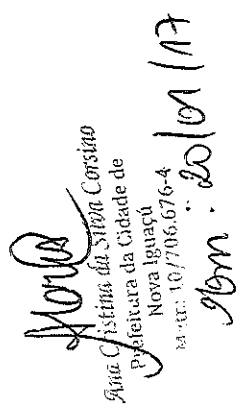 Ana Cristina da Silva Corsino
Prefeitura da Cidade de
Nova Iguaçú
Matr.: 10/706.676-4
Em: 20/01/17